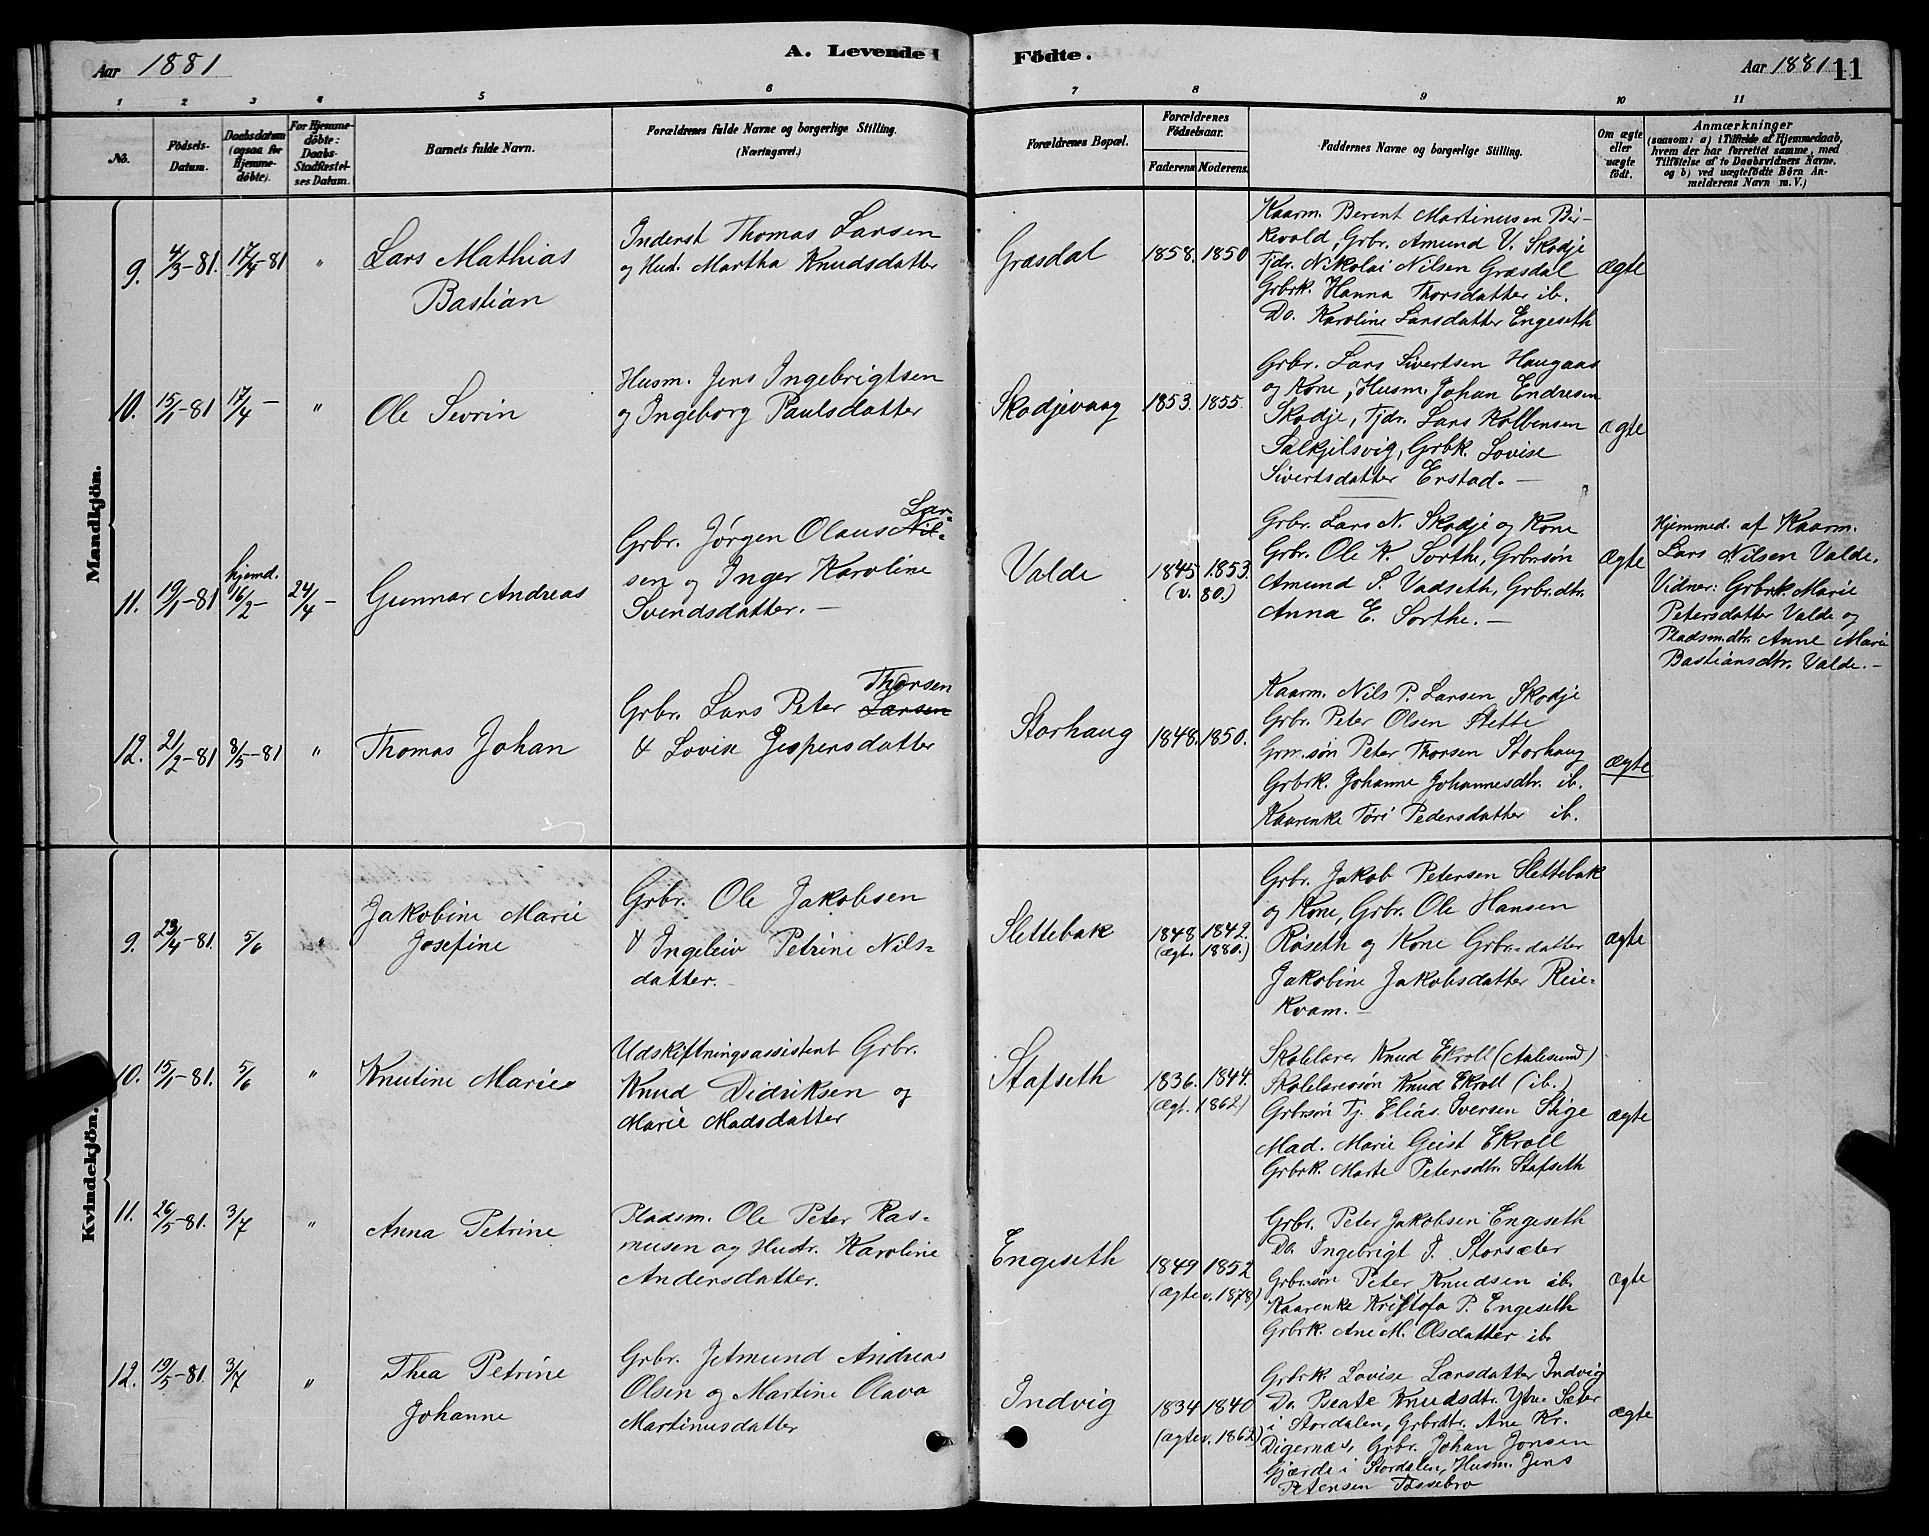 Aar 1881
A. Levende Födte.
Aar 1881 11
1 2 3 4 5 6 7 8 9 10 11
No.
Födsels-
Datum.
Daabsdatum
(ogsaa for
Hjemme-
döbte).
For Hjemme-
döbte:
Daabs-
Stadfæstel-
ses Datum.
Barnets fulde Navn.
Forældrenes fulde Navne og borgerlige Stilling.
(Næringsvei.)
Forældrenes Bopæl.
Forældrenes
Födselsaar.
Faderens Moderens.
Faddernes Navne og borgerlige Stilling.
Om ægte
eller
uægte
födt.
Anmærkninger
(saasom: a) i Tilfælde af Hjemmedaab,
hvem der har forrettet samme, med
Tilföielse af to Daabsvidners Navne.
og b) ved uægtefödte Börn An-
melderens Navn m. V.)
Mandkjön.
9. 4/3-81. 17/4-81 "
Lars Mathias
Bastian
Inderst Thomas Larsen
og Hud. Martha Knudsdatter
Græsdal
1858. 1850
Kaarm. Berent Martinusen Bir-
kevold, Grbr. Amund V. Skodje
Tjdr. Nikolai Nilsen Græsdal
Grbrk. Hanna Thorsdatter ib.
Do. Karoline Larsdatter Engeseth
ægte
10. 15/1-81 17/4 - "
Ole Sevrin
Husm. Jens Ingebrigtsen
og Ingeborg Paulsdatter
Skodjevaag
1853. 1855.
Grbr. Lars Sivertsen Haugaas
og Kone, Husm. Johan Endresen
Skodje, Tjdr. Lars Kolbensen
Salkjilsvig, Grbk. Lovise
Sivertsdatter Erstad. -
ægte
11. 19/1-81 hjemd. 16/2- 24/4-
Gunnar Andreas
Lar-
Grbr. Jørgen Olaus Nil-
sen og Inger Karoline
Svendsdatter. -
Valde
1845 1853.
(v. 80.)
Grbr. Lars N. Skodje og Kone
Grbr. Ole K. Sorthe, Grbr.søn
Amund P. Vadseth, Grbr.dtr.
Anna E. Sorthe. -
ægte
Hjemmed. af Kaarm.
Lars Nilsen Valde.
Vidner: Grbrk. Marie
Petersdatter Valde og
Pladsm.dtr. Anne Marie
Bastiansdtr. Valde. -
12. 21/2-81 8/5-81 "
Thomas Johan
Thorsen
Grbr. Lars Peter Larsen
& Lovise Jespersdatter
Storhaug
1848. 1850.
Kaarm. Nils P. Larsen Skodje
Grbr. Peter Olsen Stette
Grbr.søn Peter Thorsen Storhaug
Grbrk. Johanne Johannesdtr. ib.
Kaarenke Tøri Pedersdatter ib.
ægte
Kvindekjön.
9. 23/4-81. 5/6 "
Jakobine Marie
Josefine
Grbr. Ole Jakobsen
& Ingeleiv Petrine Nils-
datter. -
Slettebak
1848 1842.
(Ægt. 1880.)
Grbr. Jakob Petersen Slettebak
og Kone, Grbr. Ole Hansen
Røseth og Kone Grbr.datter
Jakobine Jakobsdatter Reie-
kvam. -
ægte
10. 15/1-81. 5/6 "
Knutine Marie
Udskiftningsassistent Grbr.
Knud Didriksen og
Marie Madsdatter
Stafseth
1836. 1844.
(Ægt. 1862)
Skolelærer Knud Ekroll (Aalesund)
Skolelærersøn Knud Ekroll (ib.)
Grbr.søn Tj. Elias Iversen Stige
Mad. Marie Geist Ekroll
Grbrk. Marte Petersdtr. Stafseth
ægte
11. 26/5-81. 3/7 "
Anna Petrine
Pladsm. Ole Peter Ras-
musen og Hustr. Karoline
Andersdatter.
Engeseth
1849 1852
(ægte v. 1878)
Grbr. Peter Jakobsen Engeseth
Do. Ingebrigt J. Storsæter
Grbr.søn Peter Knudsen ib.
Kaarenke Kristofa P. Engeseth
Grbrk. Ane M. Olsdatter ib.
ægte
12. 19/5-81. 3/7 "
Thea Petrine
Johanne
Grbr. Jetmund Andreas
Olsen og Martine Olava
Martinusdatter
Indvig
1834 1840
(ægte v. 1862)
Grbrk. Lovise Larsdatter Indvig
Do. Beate Knudsdtr. Ytre Sæter
i Stordalen, Grbrdtr. Ane Kr.
Digernæs, Grbr. Johan Jonsen
Gjærde i Stordalen, Husm. Jens
Petersen Fossebro
ægte